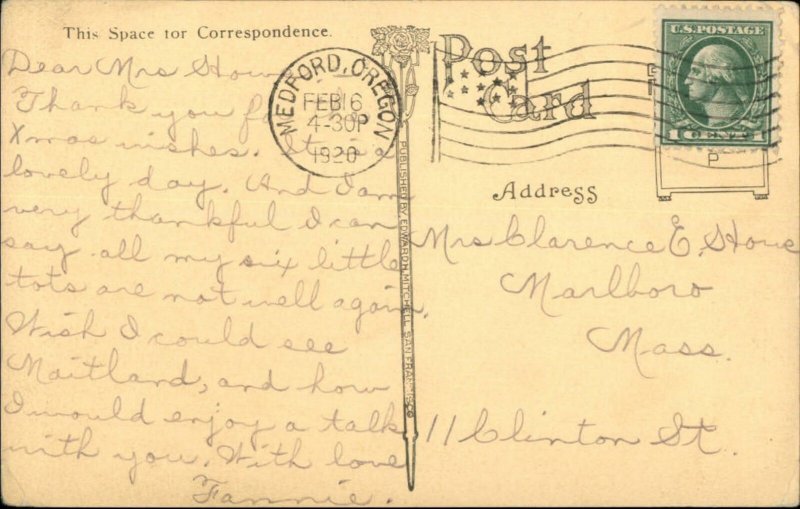 This Space for Correspondence.
Dear Mrs Howe
Thank you for
Xmas wishes. It is a
lovely day. And I am
very thankful I can
say all my six little
tots are not well again.
Wish I could see
Maitland, and how
I would enjoy a talk
with you. With love
Fannie.
MEDFORD, OREGON
FEB 16
4-30P
1920
PUBLISHED BY EDWARD H. MITCHELL, SAN FRANCISCO
Post
Card
U.S. POSTAGE
1 CENT 1
Address
Mrs Clarence E. Howe
Marlboro
Mass.
11 Clinton St.